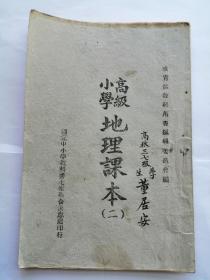 教育部教科用書編輯委員會編
高級
小學
地理課本
(二)
高秋三七級
生
董居安
國立中小學教科書七家聯合供應處印行